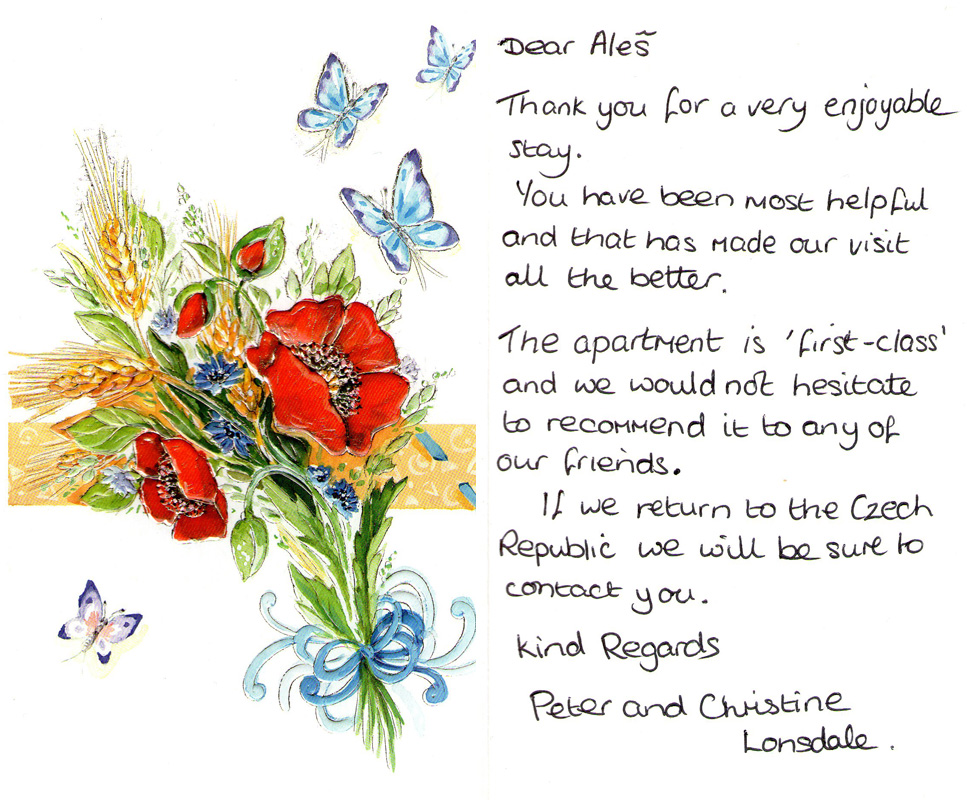 Dear Aleš
Thank you for a very enjoyable
stay.
You have been most helpful
and that has made our visit
all the better.
The apartment is 'first-class'
and we would not hesitate
to recommend it to any of
our friends.
If we return to the Czech
Republic we will be sure to
contact you.
Kind Regards
Peter and Christine
Lonsdale.